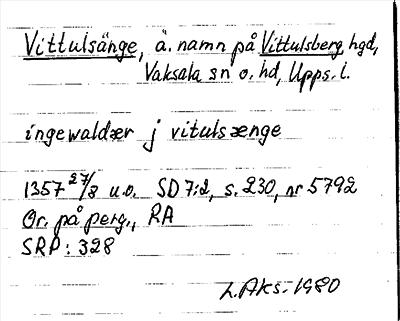 Vittulsänge, ä. namn på Vittulsberg, hgd,
Vaksala sn o. hd, Upps. l.
ingewaldær j vitulsænge
1357 27/3 u.o. SD 7:2, s. 230, nr 5792
Or. på perg., RA
SRP: 328
L. Aks. 1980